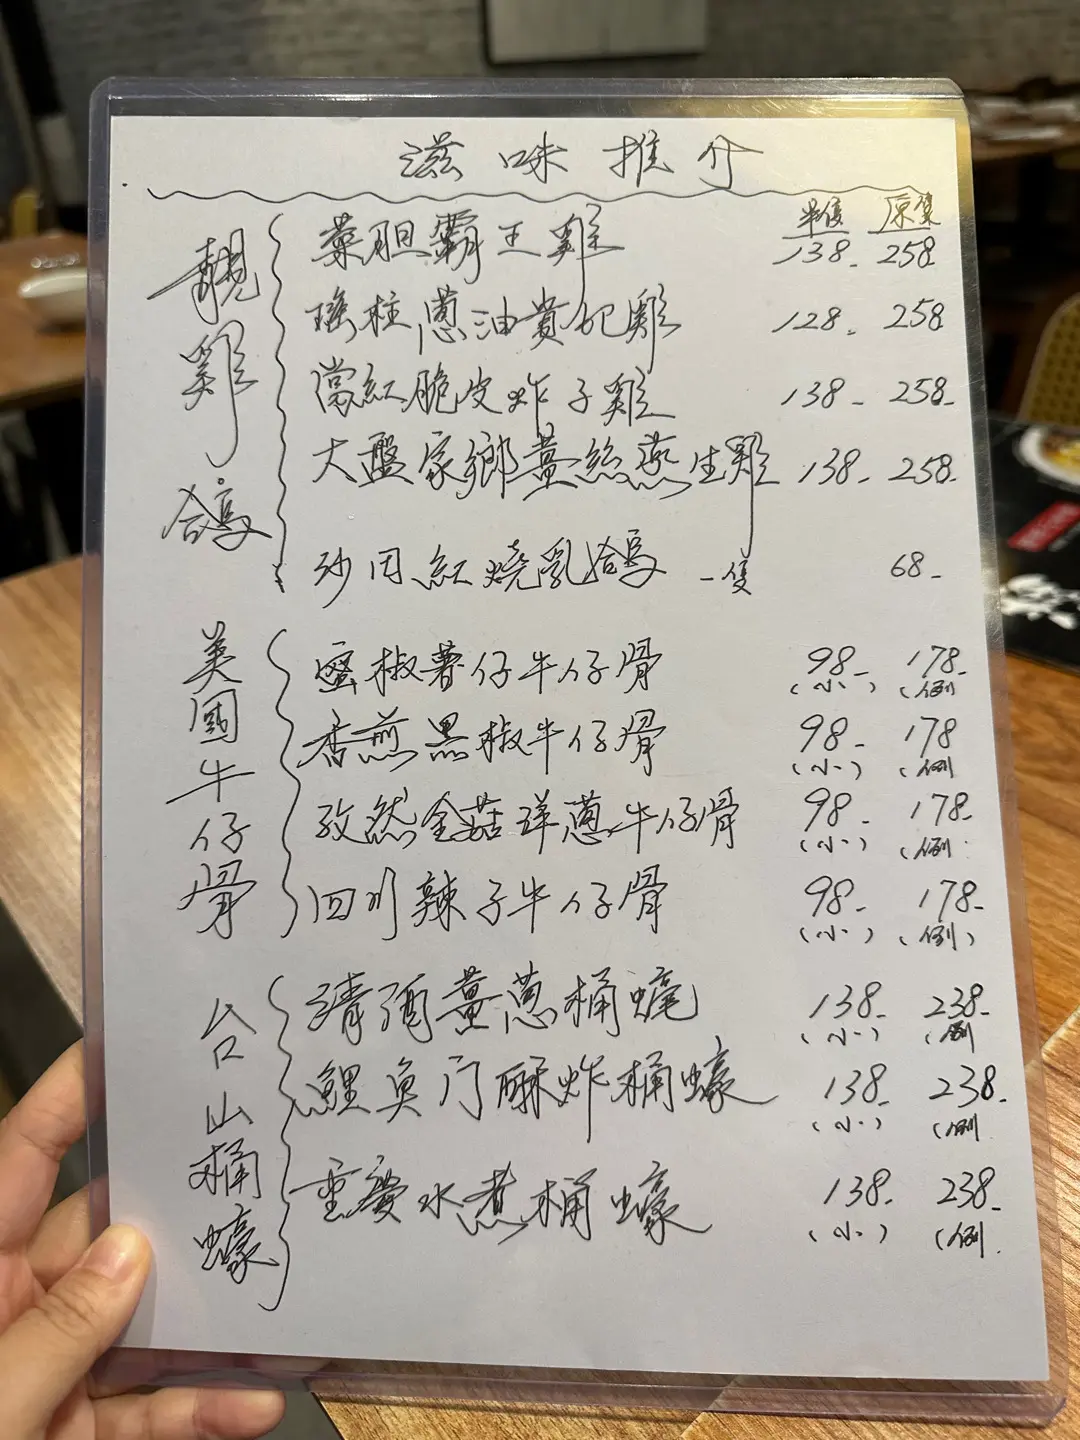 滋味推介
半隻 原隻
靚雞.鴿
藥胆霸王雞 138- 258
瑤柱蔥油貴妃雞 128- 258
當紅脆皮炸子雞 138- 258-
大盤家鄉薑絲蒸生雞 138- 258-
沙田紅燒乳鴿 一隻 68-
美國牛仔骨
蜜椒薯仔牛仔骨 98- 178-
(小) (例
香煎黑椒牛仔骨 98- 178
(小) (例
孜然金菇洋蔥牛仔骨 98- 178-
(小) (例
四川辣子牛仔骨 98- 178-
(小) (例)
台山桶蠔
清酒薑蔥桶蠔 138- 238-
(小) (例
鯉魚门酥炸桶蠔 138- 238-
(小) (例
重慶水煮桶蠔 138- 238-
(小) (例